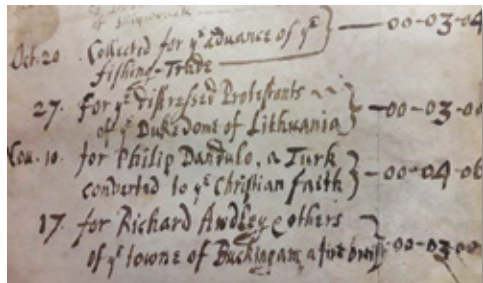 of
Oct. 20 Collected for yᵉ advance of yᵉ
fishing-Trade — 00-03-04
27. for yᵉ distressed Protestants
of yᵉ Dukedome of Lithuania — 00-03-00
Nov. 10. for Philip Dandulo, a Turk
converted to yᵉ Christian faith — 00-04-06
17. for Richard Awdley & others
of yᵉ towne of Buckingam a fire 00-03-00